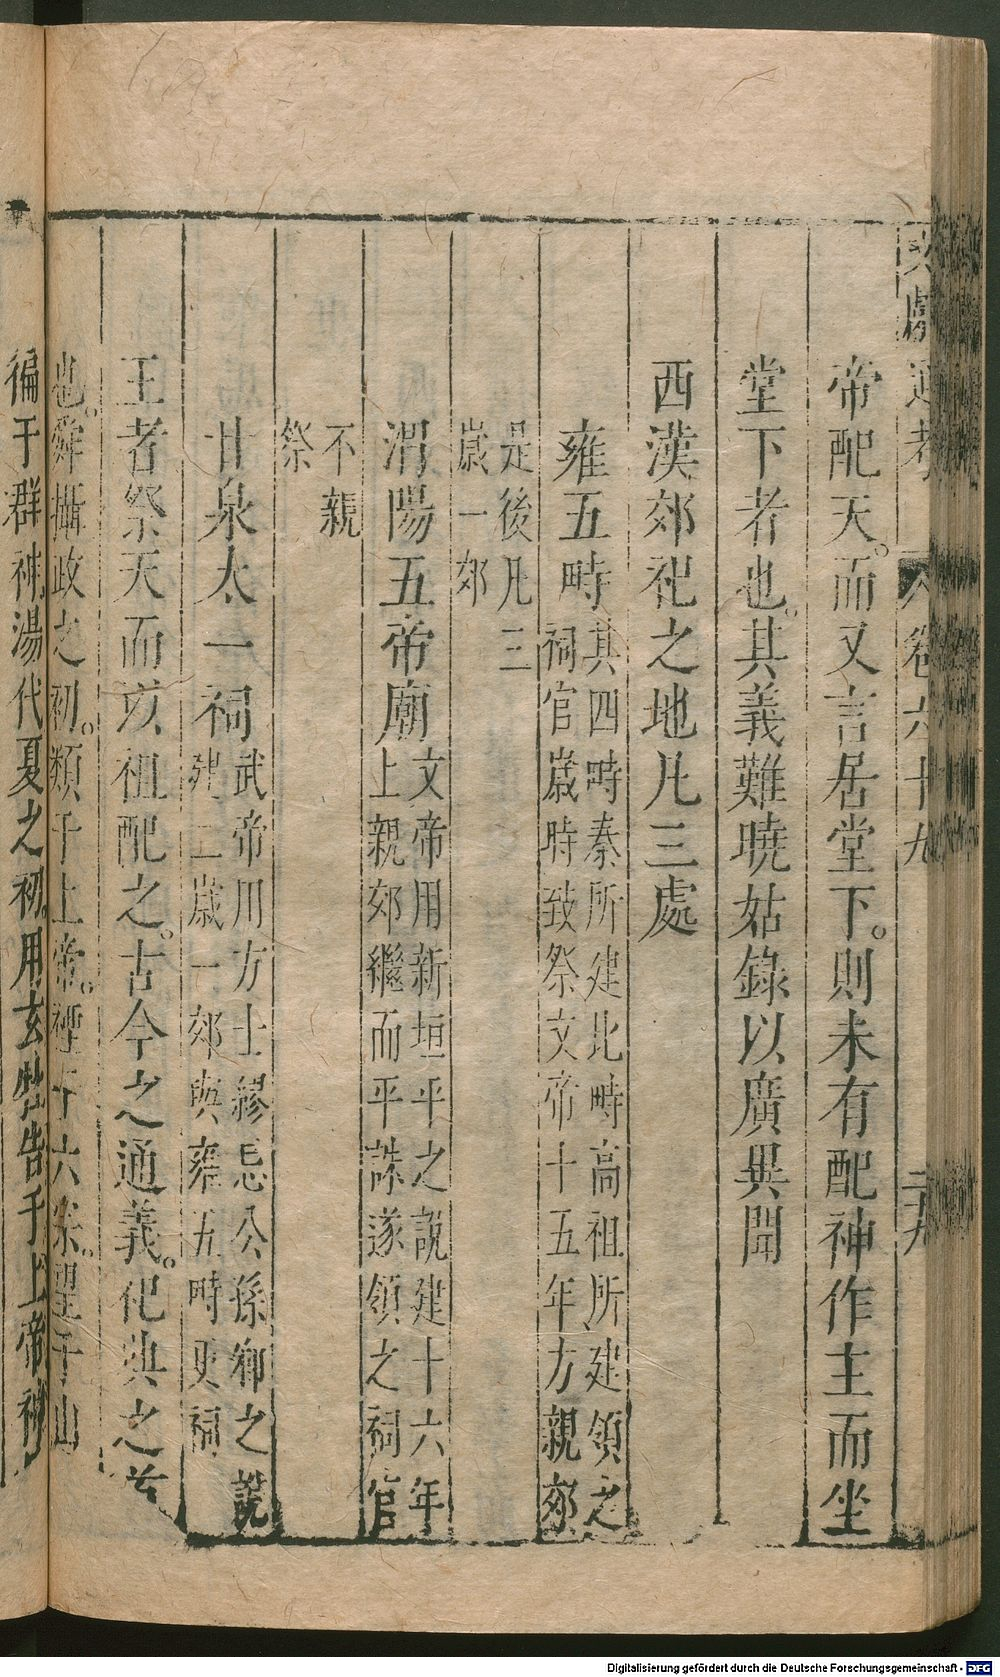 文獻通考 卷六十九 二十九
帝配天。而又言居堂下。則未有配神作主而坐
堂下者也。其義難曉姑錄以廣異聞
西漢郊祀之地凡三處
雍五畤其四畤秦所建北畤高祖所建領之
祠官歲時致祭文帝十五年方親郊
是後凡三
歲一郊
渭陽五帝廟文帝用新垣平之說建十六年
上親郊繼而平誅遂領之祠官
不親
祭
甘泉太一祠武帝用方士繆忌公孫卿之說
建二歲一郊與雍五畤更祠
王者祭天而以祖配之。古今之通義。祀典之首
也。舜攝政之初。類于上帝。禋于六宗。望于山
徧于群神湯代夏之初。用玄牡告于上帝神
Digitalisierung gefördert durch die Deutsche Forschungsgemeinschaft - DFG